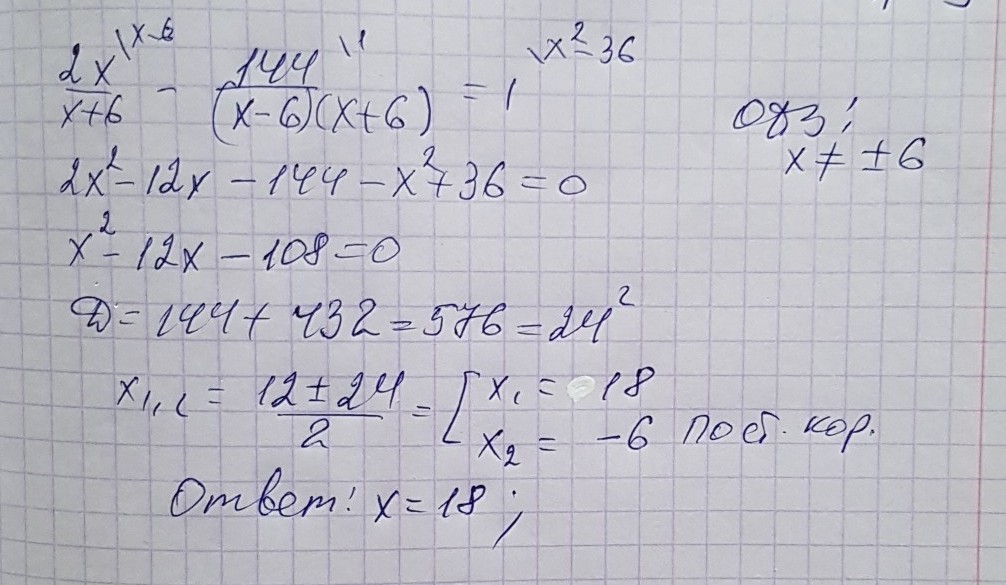 2x\x-6 / x+6 - 144\1 / (x-6)(x+6) = 1\x²-36
ОДЗ:
x ≠ ±6
2x²-12x-144-x²+36=0
x²-12x-108=0
D=144+432=576=24²
x₁,₂ = 12±24 / 2 = [ x₁ = 18
x₂ = -6 пост. кор.
Ответ: x=18;